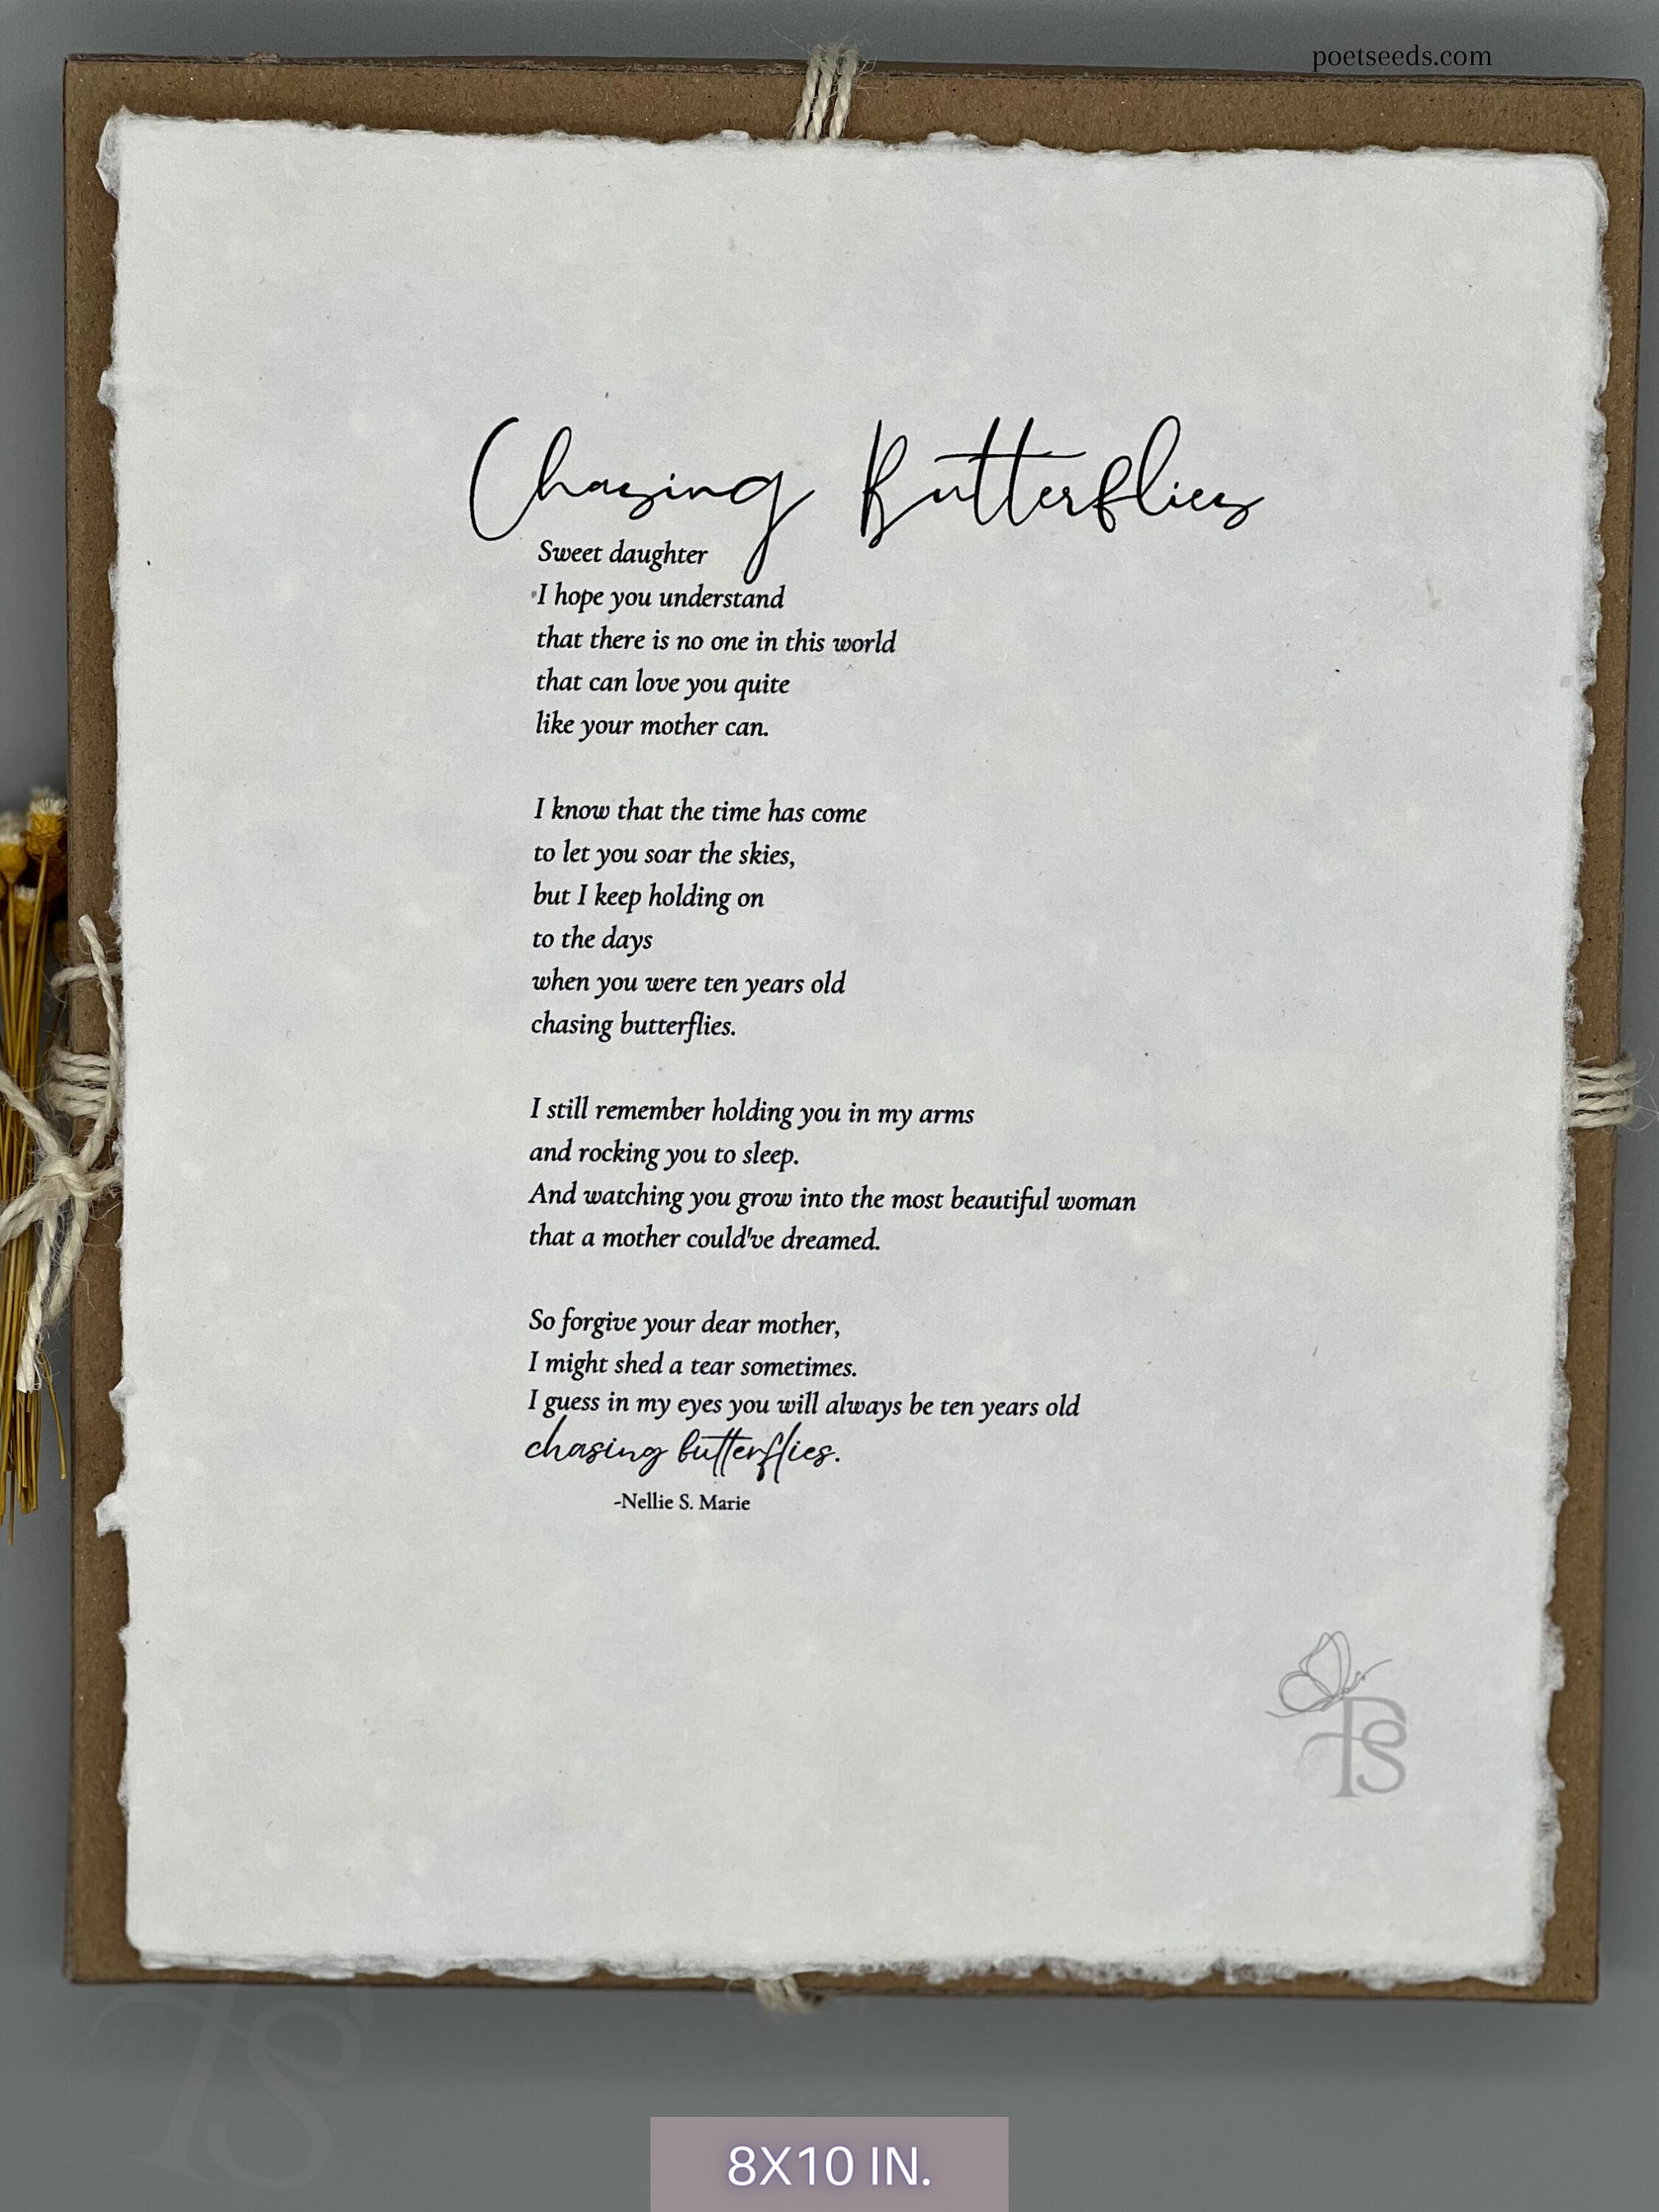 poetseeds.com
Chasing Butterflies
Sweet daughter
I hope you understand
that there is no one in this world
that can love you quite
like your mother can.
I know that the time has come
to let you soar the skies,
but I keep holding on
to the days
when you were ten years old
chasing butterflies.
I still remember holding you in my arms
and rocking you to sleep.
And watching you grow into the most beautiful woman
that a mother could've dreamed.
So forgive your dear mother,
I might shed a tear sometimes.
I guess in my eyes you will always be ten years old
chasing butterflies.
-Nellie S. Marie
PS
PS
8X10 IN.